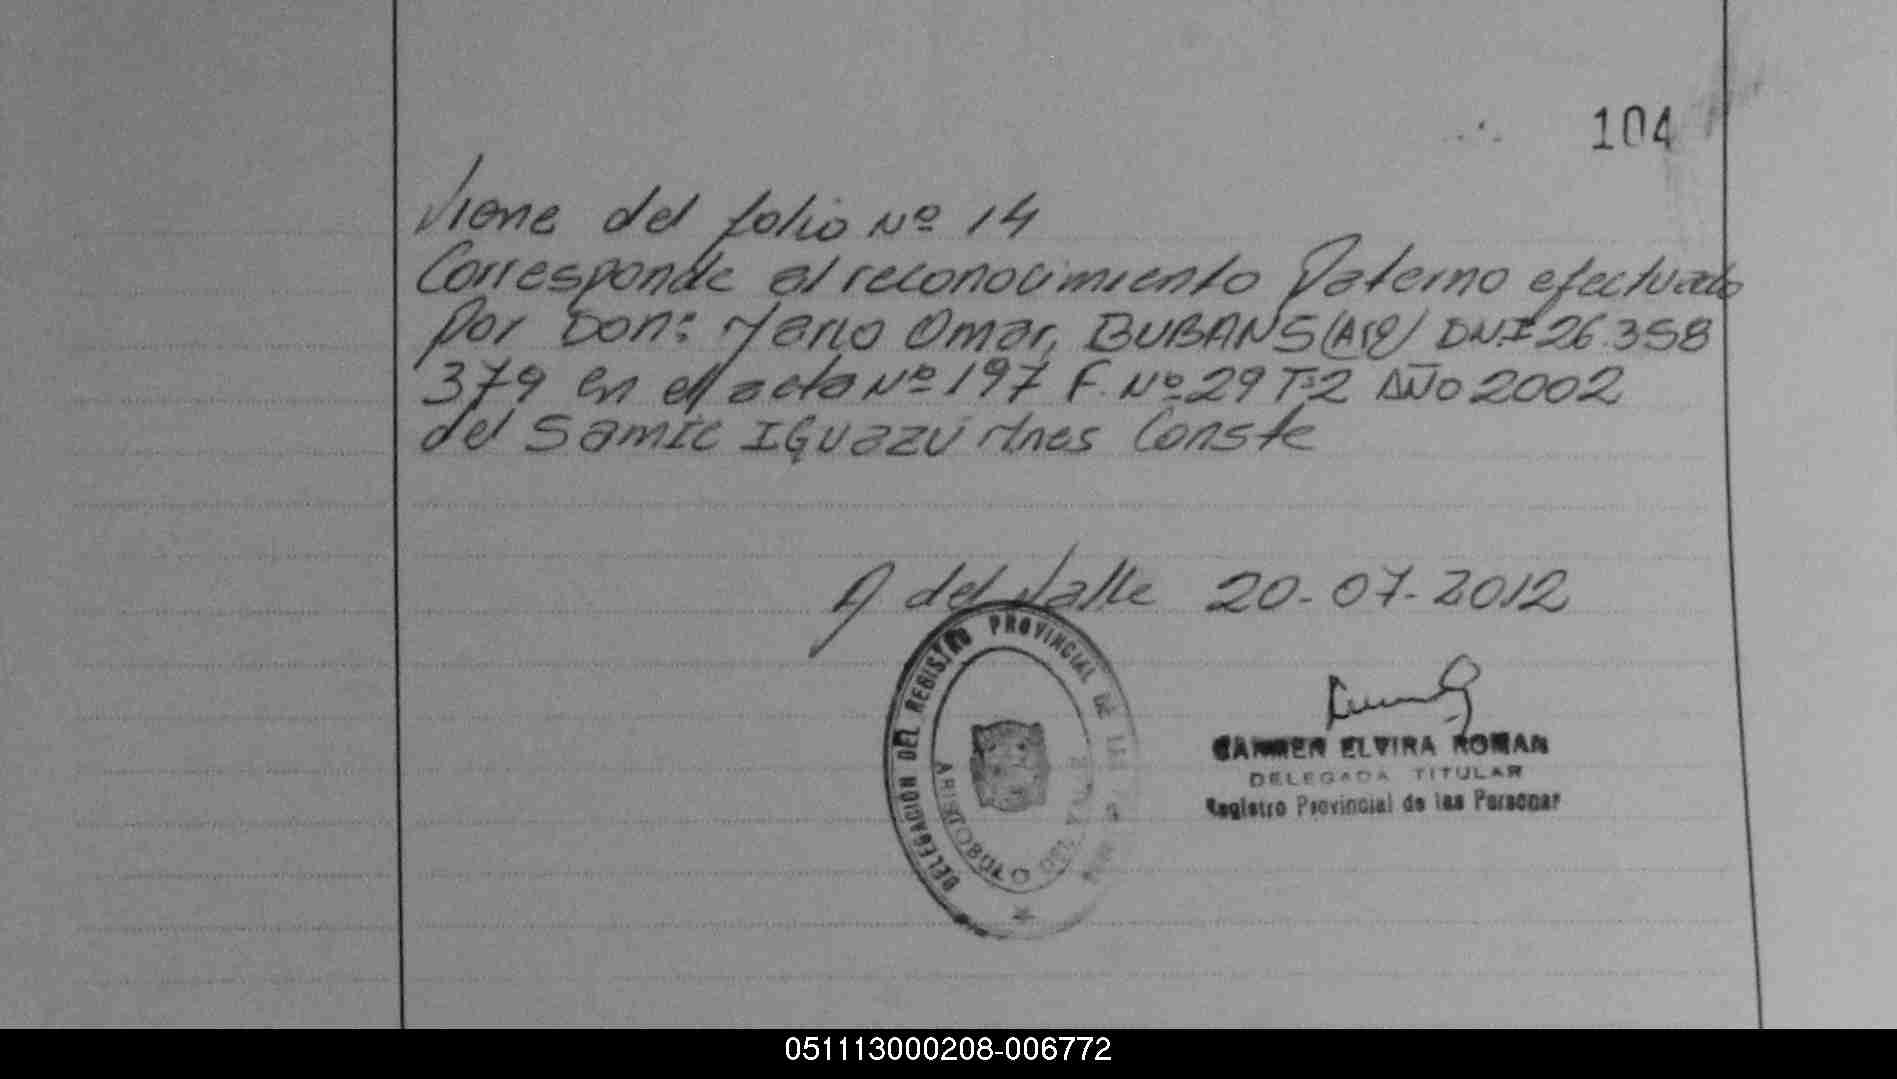 104
Viene del folio Nº 14
Corresponde al reconocimiento Paterno efectuado
por Don: Mario Omar, BUBANS (Arg) DNI 26.358
379 en el acta Nº 197 F. Nº 29 Tº2 AÑO 2002
del Samic IGuazú Mnes Conste
A del Valle 20-07-2012
DELEGACION DEL REGISTRO PROVINCIAL DE LAS
ARISTOBULO DEL VALLE
CARMEN ELVIRA ROMAN
DELEGADA TITULAR
Registro Provincial de las Personas
051113000208-006772